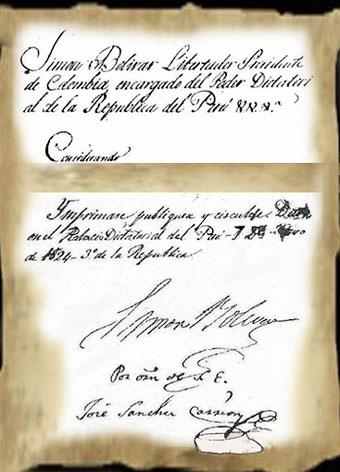 Simon Bolivar Libertador Presidente
de Colombia, encargado del Poder Dictatori
al de la Republica del Perú &.&.&.
Considerando
Ymprimase publiquese y circulese. Dado
en el Palacio Dictatorial del Perú
de 1824 - 3º de la Republica.
Simon Bolivar
Por orn de S. E.
José Sanchez Carrion